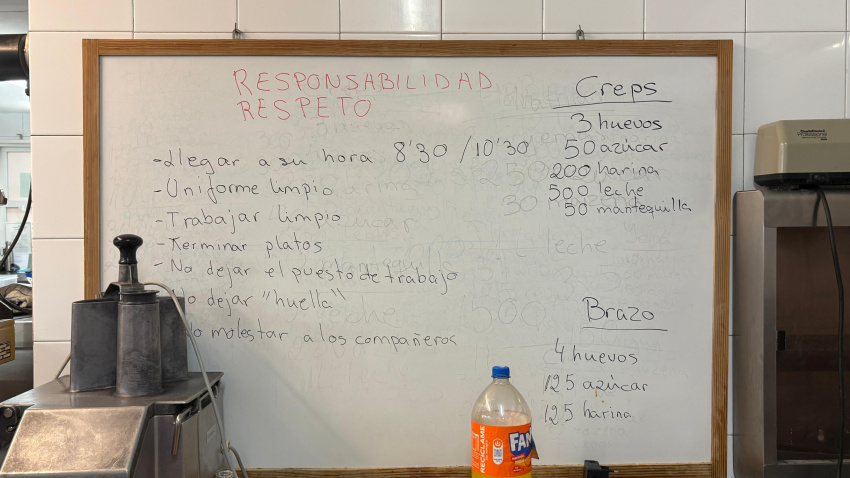 RESPONSABILIDAD
RESPETO
-Llegar a su hora 8'30 /10'30
-Uniforme limpio
-Trabajar limpio
-Terminar platos
-No dejar el puesto de trabajo
No dejar "huella"
No molestar a los compañeros
Creps
3 huevos
50 azúcar
200 harina
500 leche
50 mantequilla
Brazo
4 huevos
125 azúcar
125 harina
RECICLAME
FAN